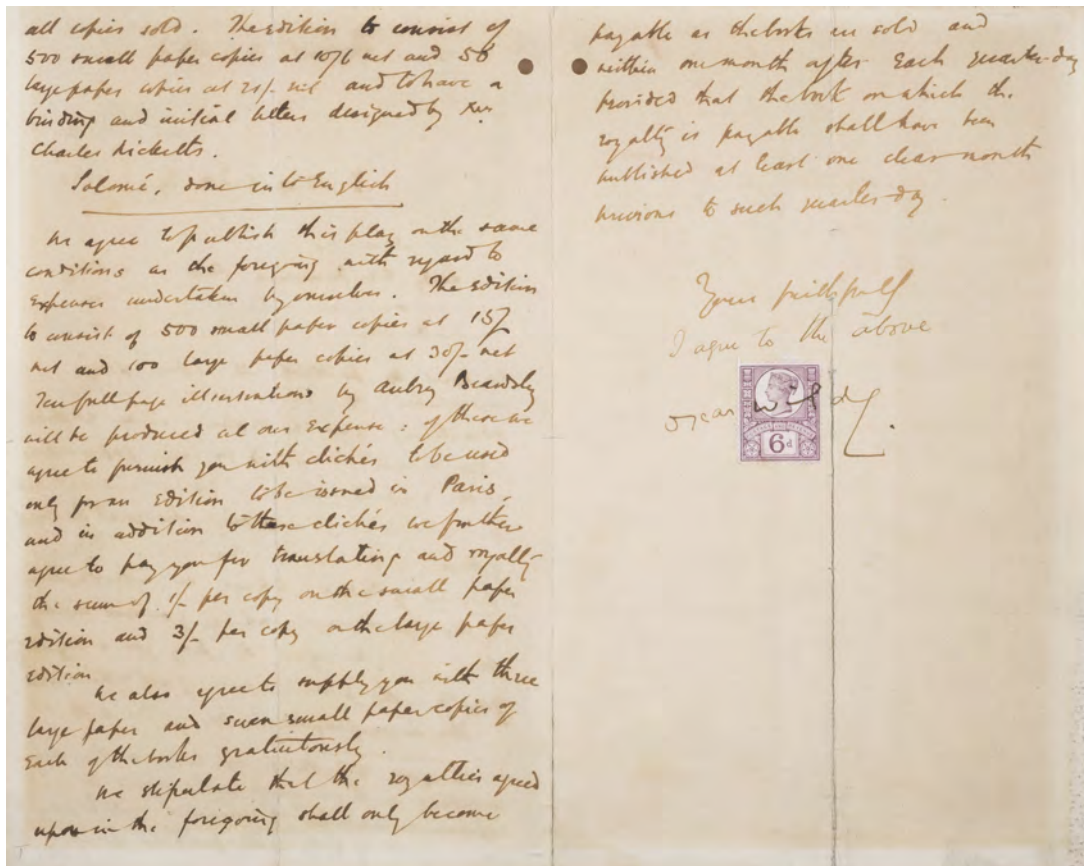 all copies sold. The edition to consist of
500 small paper copies at 10/6 net and 50
large paper copies at 21/- net and to have a
binding and initial letters designed by Mr
Charles Ricketts.
Salomé, done into English
We agree to publish this play on the same
conditions as the foregoing with regard to
Expenses undertaken by ourselves. The Edition
to consist of 500 small paper copies at 15/
net and 100 large paper copies at 30/- net
Ten full page illustrations by Aubrey Beardsley
will be produced at our Expense: of these we
agree to furnish you with clichés to be used
only for an Edition to be issued in Paris,
and in addition to these clichés we further
agree to pay you for translating and royalty
the sum of 1/- per copy on the small paper
Edition and 3/- per copy on the large paper
Edition
We also agree to supply you with three
large paper and seven small paper copies of
Each of the books gratuitously.
We stipulate that the royalties agreed
upon in the foregoing shall only become
payable as the books are sold and
within one month after Each quarter-day
provided that the book on which the
royalty is payable shall have been
published at least one clear month
previous to such quarter-day.
Yours faithfully
I agree to the above
Oscar Wilde
6d